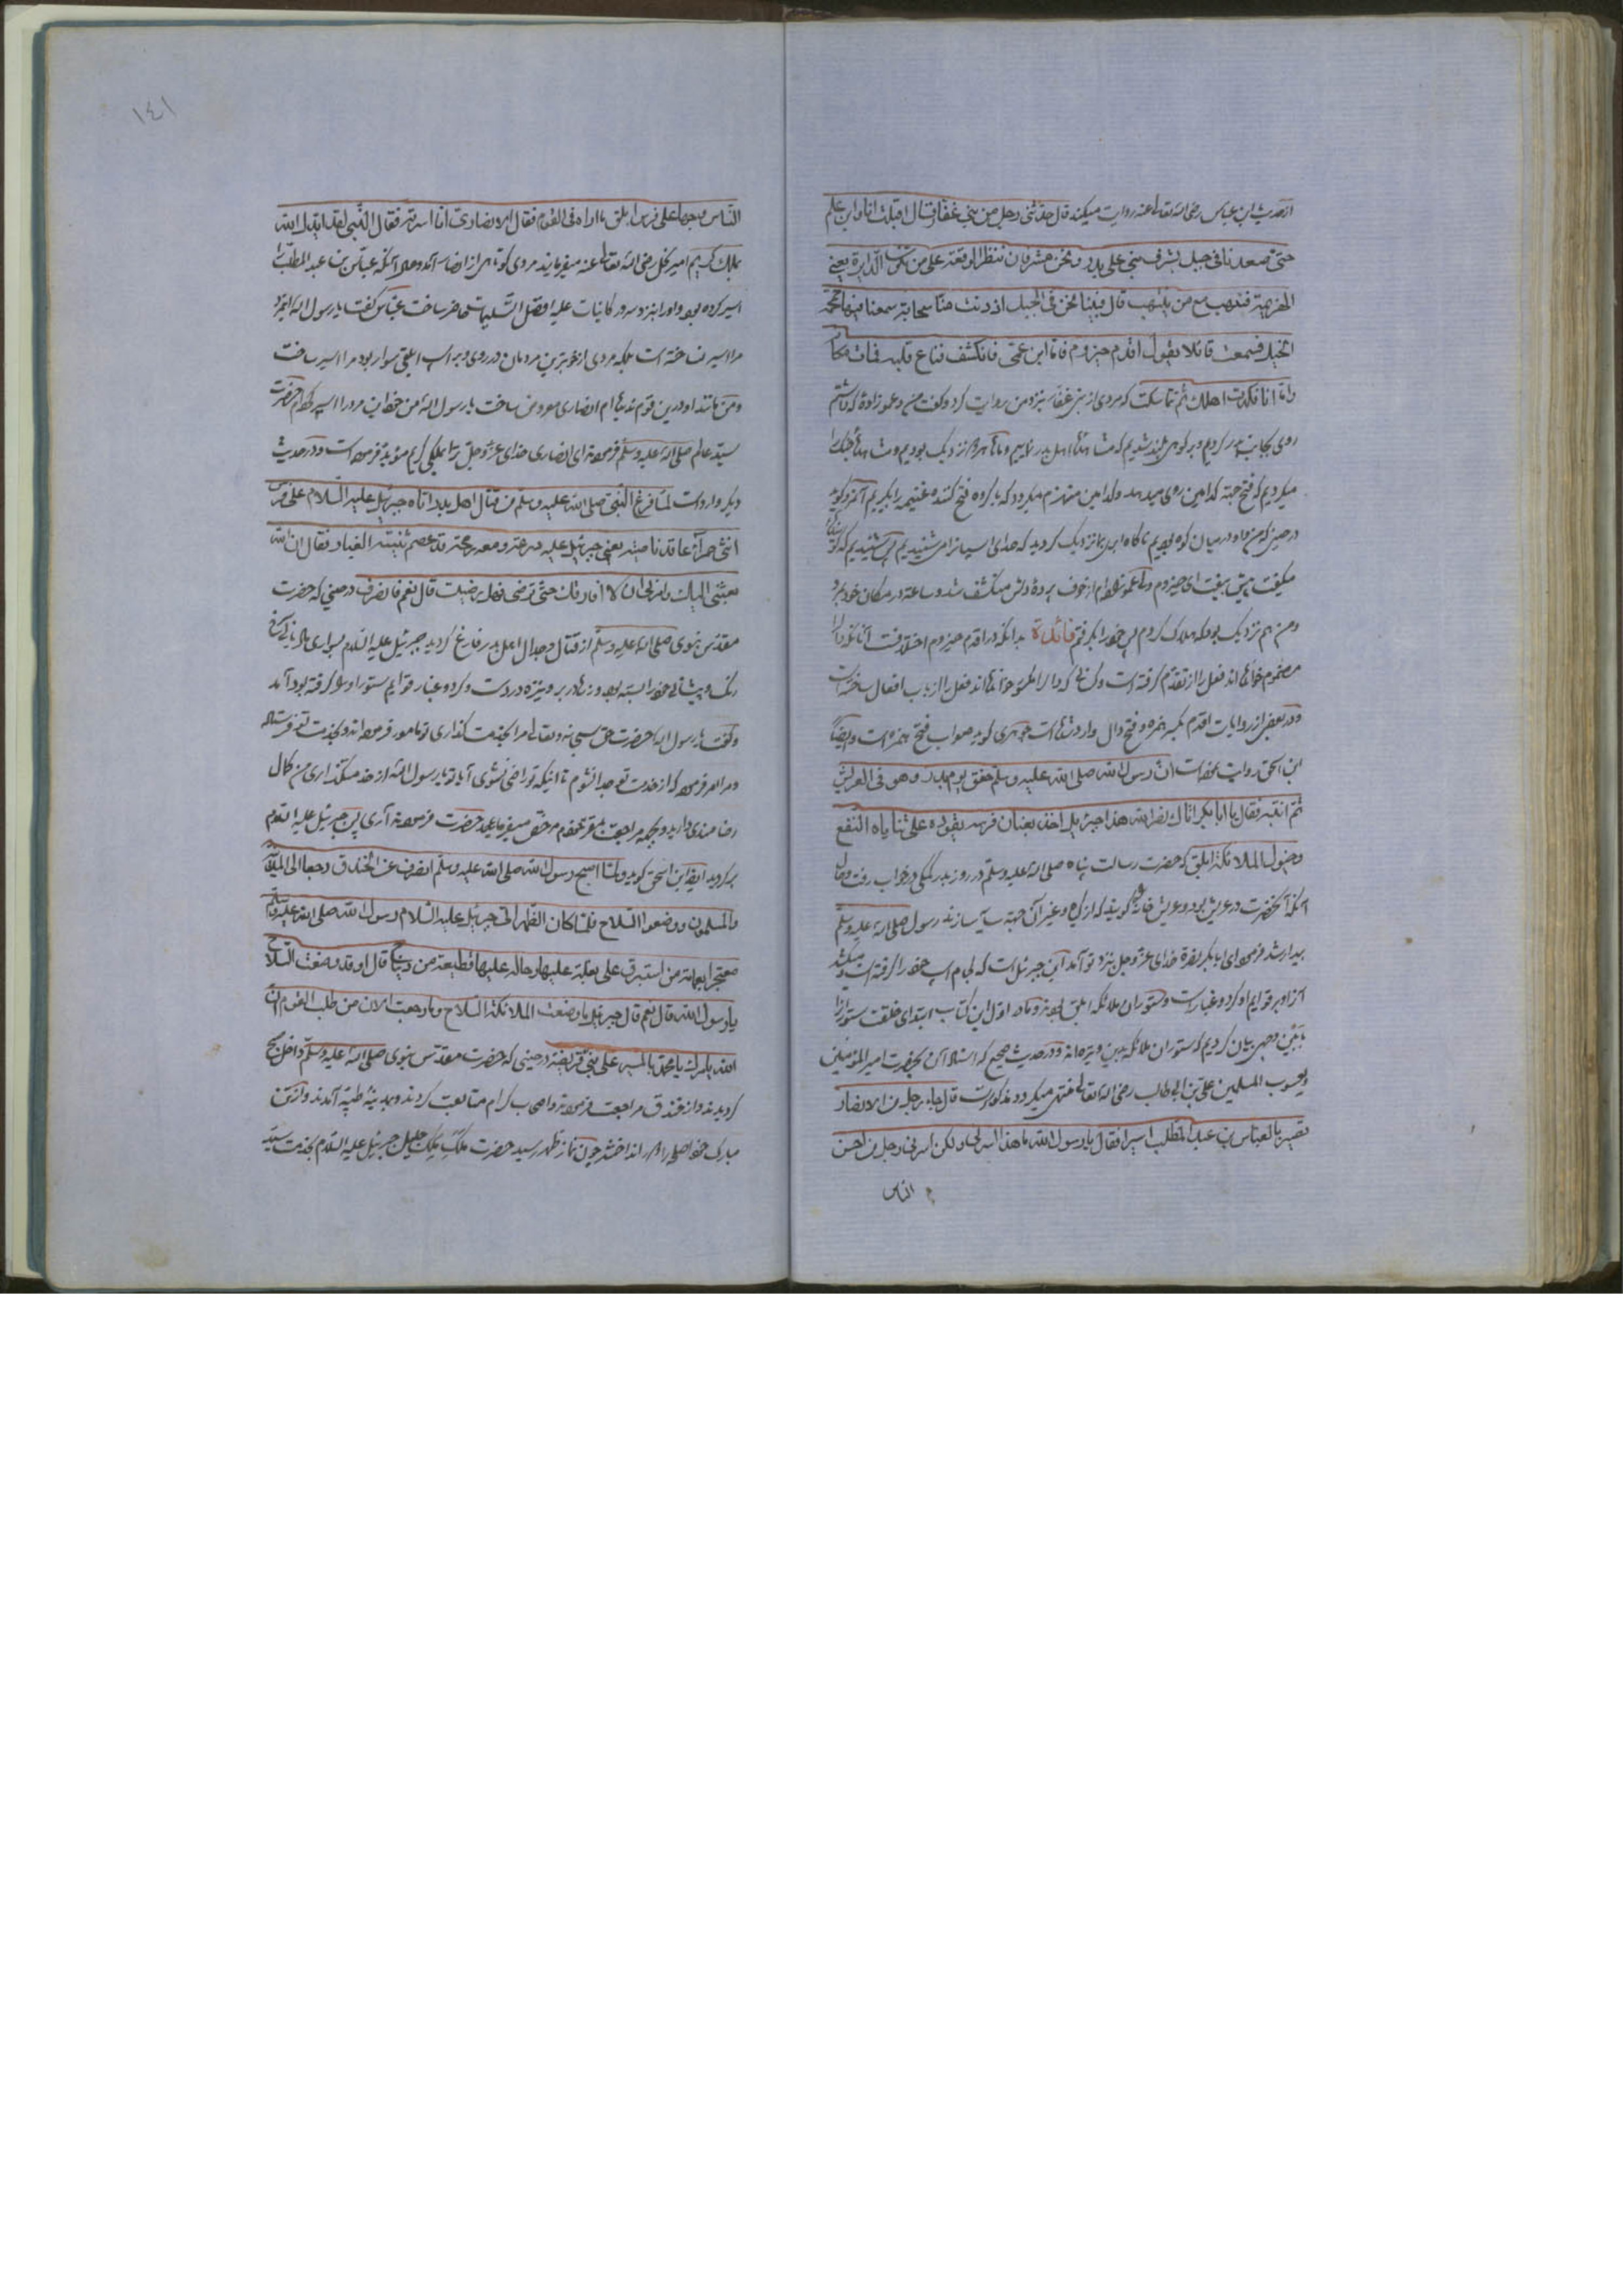 ازحدیث ابن عباس رضی الله تعالی عنه روایت میکند قال حدثنی رجل من بنی غفار قال اقبلت انا وابن عم
حتی صعدنا فی جبل یشرف بنی علی بدر ونحن مشرکان ننتظر الوقعة علی من تکون الدایرة یعنی
الهزیمة فننهب مع من ینتهب قال فبینا نحن فی الجبل اذ دنت منا سحابة سمعنا فیها حمحمة
الخیل فسمعت قائلا یقول اقدم حیزوم فاما ابن عمی فانکشف قناع قلبه فمات مکانه
واما انا فکدت اهلک ثم تماسکت که مردی از بنی غفار نزد من روایت کرد وگفت من وعموزادهٔ که داشتم
روی بجانب بدر کردیم وبر کوهی بلند شدیم که مشاهدهٔ اهل بدر نماییم وما هر دو نزدیک بودیم
میکردیم که فتح جبهه کدامین روی میدهد وکدامین منهزم میکردد که با کروه فتح کننده غنیمه را بکیریم
درحین که من واو در میان کوه بودیم ناکاه ابری بما نزدیک کردید که صدای اسپان را می شنیدیم پس شنیدیم که
میکفت پیش بیفت ای حیزوم ولی عموزاده‌ام از خوف پردهٔ دلش منکشف شد وساعته در مکان خود بمرد
ومن هم نزدیک بود که هلاک کردم پس خود را بکرفتم فائدة بدانکه در اقدم حیزوم اختلافست آنانکه دال را
مضموم خوانده‌اند فعل را از تقدم کرفته است وکسانی که دال را مکسور خوانده‌اند فعل را از باب افعال ساخته است
ودر بعض از روایات اقدم بکسر همزه وفتح دال وارد شده است جوهری کوید صواب فتح همزه است وایضا
ابن اسحق روایت نموده است ان رسول الله صلی الله علیه وسلم خفق یوم بدر وهو فی العریش
ثم انتبه فقال یا ابابکر اتاک نصر الله هذا جبرئیل اخذ بعنان فرسه یقوده علی ثنایاه النقع
وخیول الملائکة ابلق که حضرت رسالت پناه صلی الله علیه وسلم در روز بدر بکمی درخواب رفت وحال
آنکه آنحضرت در عریش بود وعریش خانهٔ کویند که از کاه وغیر آن جهته سایه سازند رسول صلی الله علیه وسلم
بیدار شد فرمود ای ابابکر نصرة خدای عز وجل نزد تو آمد این جبرئیل است که لجام اسپ خود را کرفته است ومیکشد
آنرا وبر قوایم او کرد وغبارست وستوران ملائکه ابلق بودند وما در اول این کتاب ابتدای خلقت ستور را
بابین وجهی بیان کردیم که ستوران ملائکه بدین وتیره‌اند ودر حدیث صحیح که اسناد آن بحضرت امیر المؤمنین
ویعسوب المسلمین علی بن ابی طالب رضی الله تعالی عنه منتهی میکردد مذکور است قال جاء رجل من الانصار
قصیر بالعباس بن عبد المطلب اسیرا فقال یا رسول الله ما هذا اسرنی ولکن اسرنی رجل من احسن
الناس
١٤١
الناس وجها علی فرس ابلق ما اراه فی القوم فقال الانصاری انا اسرته فقال النبی لقد ایدک الله
بملک کریم امیر کل رضی الله تعالی عنه میفرمایند مردی کوتاهی از انصار آمد وحال آنکه عباس بن عبد المطلب را
اسیر کرده بود واو را بنزد سرور کاینات علیه افضل التسلیمات حاضر ساخت عباس کفت یا رسول الله این مرد
مرا اسیر نساخته است بلکه مردی از خوبترین مردمان در روی وبر اسپ ابلقی سوار بود مرا اسیر ساخت
ومن مانند او در این قوم ندیده‌ام انصاری معروض ساخت یا رسول الله من خود این مرد را اسیر کرده‌ام حضرت
سید عالم صلی الله علیه وسلم فرمودند ای انصاری خدای عز وجل ترا بملکی کریم مؤید فرموده است ودر حدیث
دیکر وارد است لما فرغ النبی صلی الله علیه وسلم من قتال اهل بدر اتاه جبرئیل علیه السلام علی فرس
انثی حمراء عاقد ناصیته یعنی جبرئیل علیه درعه ومعه رمحه قد عصم ثنیته الغبار فقال ان الله
بعثنی الیک وامرنی ان لا افارقک حتی ترضی فهل رضیت قال نعم فانصرف درحینی که حضرت
مقدس نبوی صلی الله علیه وسلم از قتال وجدال اهل بدر فارغ کردید جبرئیل علیه السلام بسواری مادیانی سرخ
رنک وپیشانی خود را بسته بود وزره در بر ونیزه در دست وکرد وغبار قوایم ستور او را کرفته بود آمد
وکفت یا رسول الله حضرت حق سبحانه وتعالی مرا بخدمت کذاری تو مامور فرموده اند وبخدمت تو فرستاد
ومرا امر فرمود که از خدمت تو جدا نشوم تا اینکه تو راضی نشوی آیا تو یا رسول الله از خدمتکذاری من کمال
رضامندی دارید وبجهه مراجعت بمقر خودم مرخص میفرمایید حضرت فرمودند آری پس جبرئیل علیه السلام
برکردید ایضا ابن اسحق کوید ولما اصبح رسول الله صلی الله علیه وسلم انصرف عن الخندق راجعا الی المدینة
والمسلمون ووضعوا السلاح فلما کان الظهر اتی جبرئیل علیه السلام رسول الله صلی الله علیه وسلم
معتجرا بعمامة من استبرق علی بغلة علیها رحالة علیها قطیعة من دیباج قال اوقد وضعت السلاح
یا رسول الله قال نعم قال جبرئیل ما وضعت الملائکة السلاح وما رجعت الان من طلب القوم ان
الله یامرک یا محمد بالمسیر علی بنی قریضة درحینی که حضرت مقدس نبوی صلی الله علیه وسلم داخل صبح
کردیدند واز خندق مراجعت فرمودند واصحاب کرام متابعت کردند وبمدینهٔ طیبه آمدند واز تن
مبارک خود اصلحه را انداختند چون نماز ظهر رسید حضرت ملک ملیک جلیل جبرئیل علیه السلام بخدمت سید